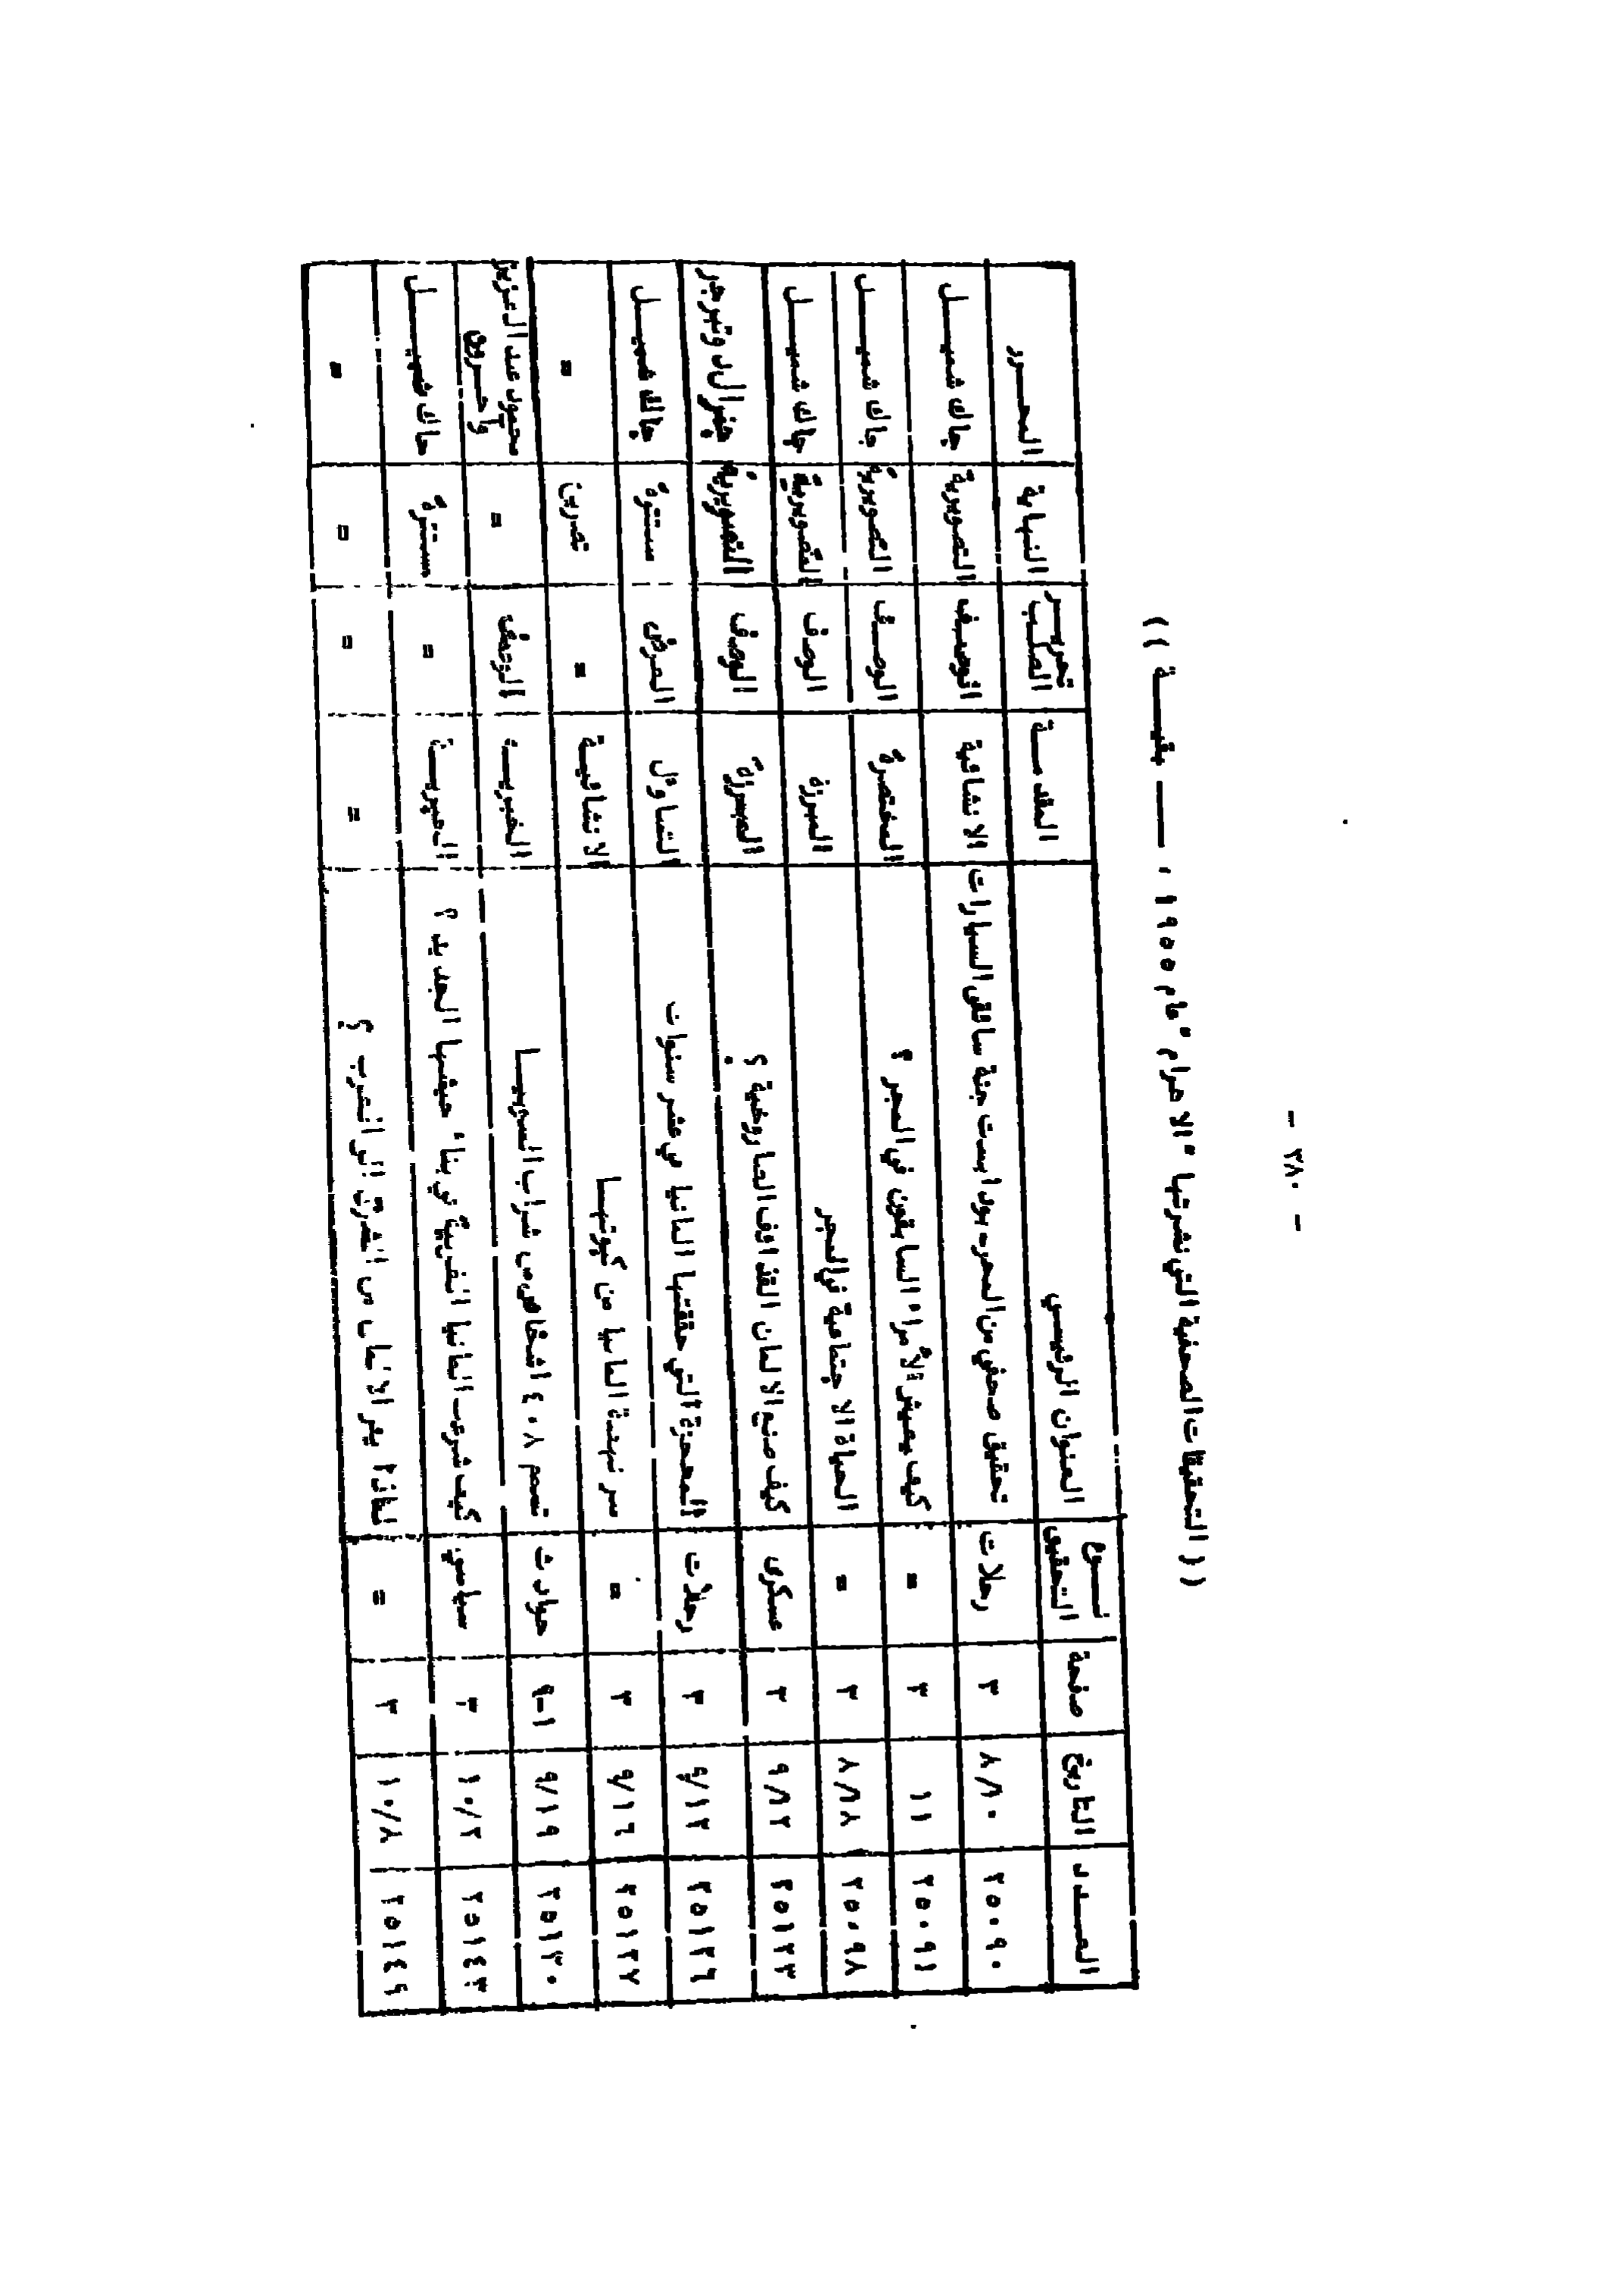 - ٣٨٠ -
(( التحقيقات الصحفية التي نشرتها " الاهرام " عام ١٩٥٥ ، ـــ بقيــة ))
العــدد التاريخ صفحة نــوع التحقيق العنوان الرئيسي المقدمــة تحريــر الصلب النهاية المحــرر
٢٥٠٩٠ ٨/١٠ ٣ رحلات تحقيق صحفي من المجر - بودابست جنة سائقي السيارات الانشائية الوصـف التصويرية جاك شميــل
٢٥٠٩١ ١١ ٣ = كيف يعيش الأمراء السابقون في المجر ؟ المختصرة الوصـف التصويرية جاك شميــل
٢٥٠٩٨ ٨/١٨ ٣ = الحياة الاجتماعية في المجر المبرزة الوصف التصويرية جاك شميــل
٢٥١٢٣ ٩/١٢ ٣ عسكرى كيف صنع الالمان القذائف الصاروخية ؟ المبرزة الوصف التصويرية جنرال د وتبرجر
٢٥١٢٦ ٩/١٢ ٣ رحلات المعجزة التي حققتها المانيا في عشر سنوات التساؤل العرض مستترة جاك شميــل
٢٥١٢٧ ٩/١٦ ٣ = سر نهضة المانيا من كبوتهــا الانشائيـة = تمرين =
٢٥١٣٠ ٩/١٩ ١-٩ حوادث تسمم ٤٠٨ اشخاص من شراب السوبيــا الخبريــة الوصف = محمود عبد العزيز وآخــرون
٢٥١٤٣ ١٠/٢ ٣ سياسي كيف شرعت المانيا الغربية في بناء جيشها الجديد ؟ الخبريــة = مستترة جاك شميــل
٢٥١٤٩ ١٠/٨ ٣ = لماذا يفر الالمان من الشرق الى الغرب ؟ = = = =